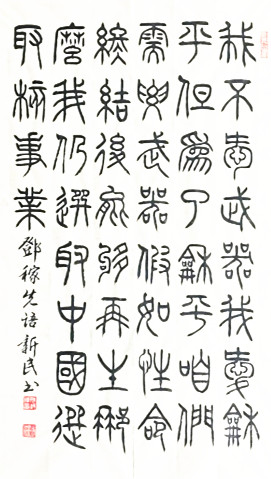 我不愛武器我愛龢
平但為了龢平咱們
需要武器假如性命
終結後能夠再生那
麼我仍選取中國選
取核事業
鄧稼先語新民書